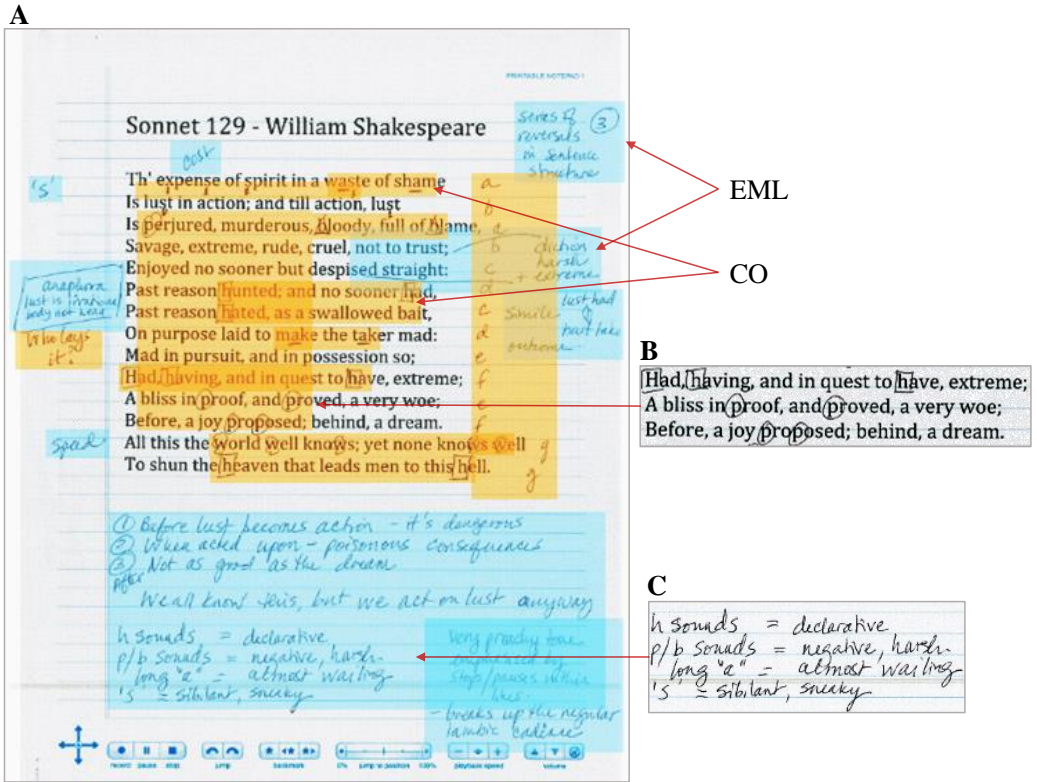 A
PRINTABLE NOTEPAD 1
series of ③
reversals
in sentence
structure
Sonnet 129 - William Shakespeare
cost
's'
Th' expense of spirit in a waste of shame a
Is lust in action; and till action, lust b
Is perjured, murderous, bloody, full of blame, a
Savage, extreme, rude, cruel, not to trust; b
diction
harsh
+ extreme
Enjoyed no sooner but despised straight: c
Past reason hunted; and no sooner had, d
Past reason hated, as a swallowed bait, c
On purpose laid to make the taker mad: d
Mad in pursuit, and in possession so; e
Had, having, and in quest to have, extreme; f
A bliss in proof, and proved, a very woe; e
Before, a joy proposed; behind, a dream. f
All this the world well knows; yet none knows well g
To shun the heaven that leads men to this hell. g
anaphora
lust is irrational
body not head
Who lays
it?
simile
lust had
bait take
outcome
speed
EML
CO
① Before lust becomes action - it's dangerous
② When acted upon - poisonous consequences
③ Not as good as the dream
After
We all know this, but we act on lust anyway
h sounds = declarative
p/b sounds = negative, harsh
long "a" = almost wailing
's' = sibilant, sneaky
Very preachy tone
emphasized by
stop/pauses within
lines
- breaks up the regular
iambic cadence
record pause stop jump bookmark 0% jump to position 100% playback speed volume
B
Had, having, and in quest to have, extreme;
A bliss in proof, and proved, a very woe;
Before, a joy proposed; behind, a dream.
C
h sounds = declarative
p/b sounds = negative, harsh.
long "a" = almost wailing
's' = sibilant, sneaky